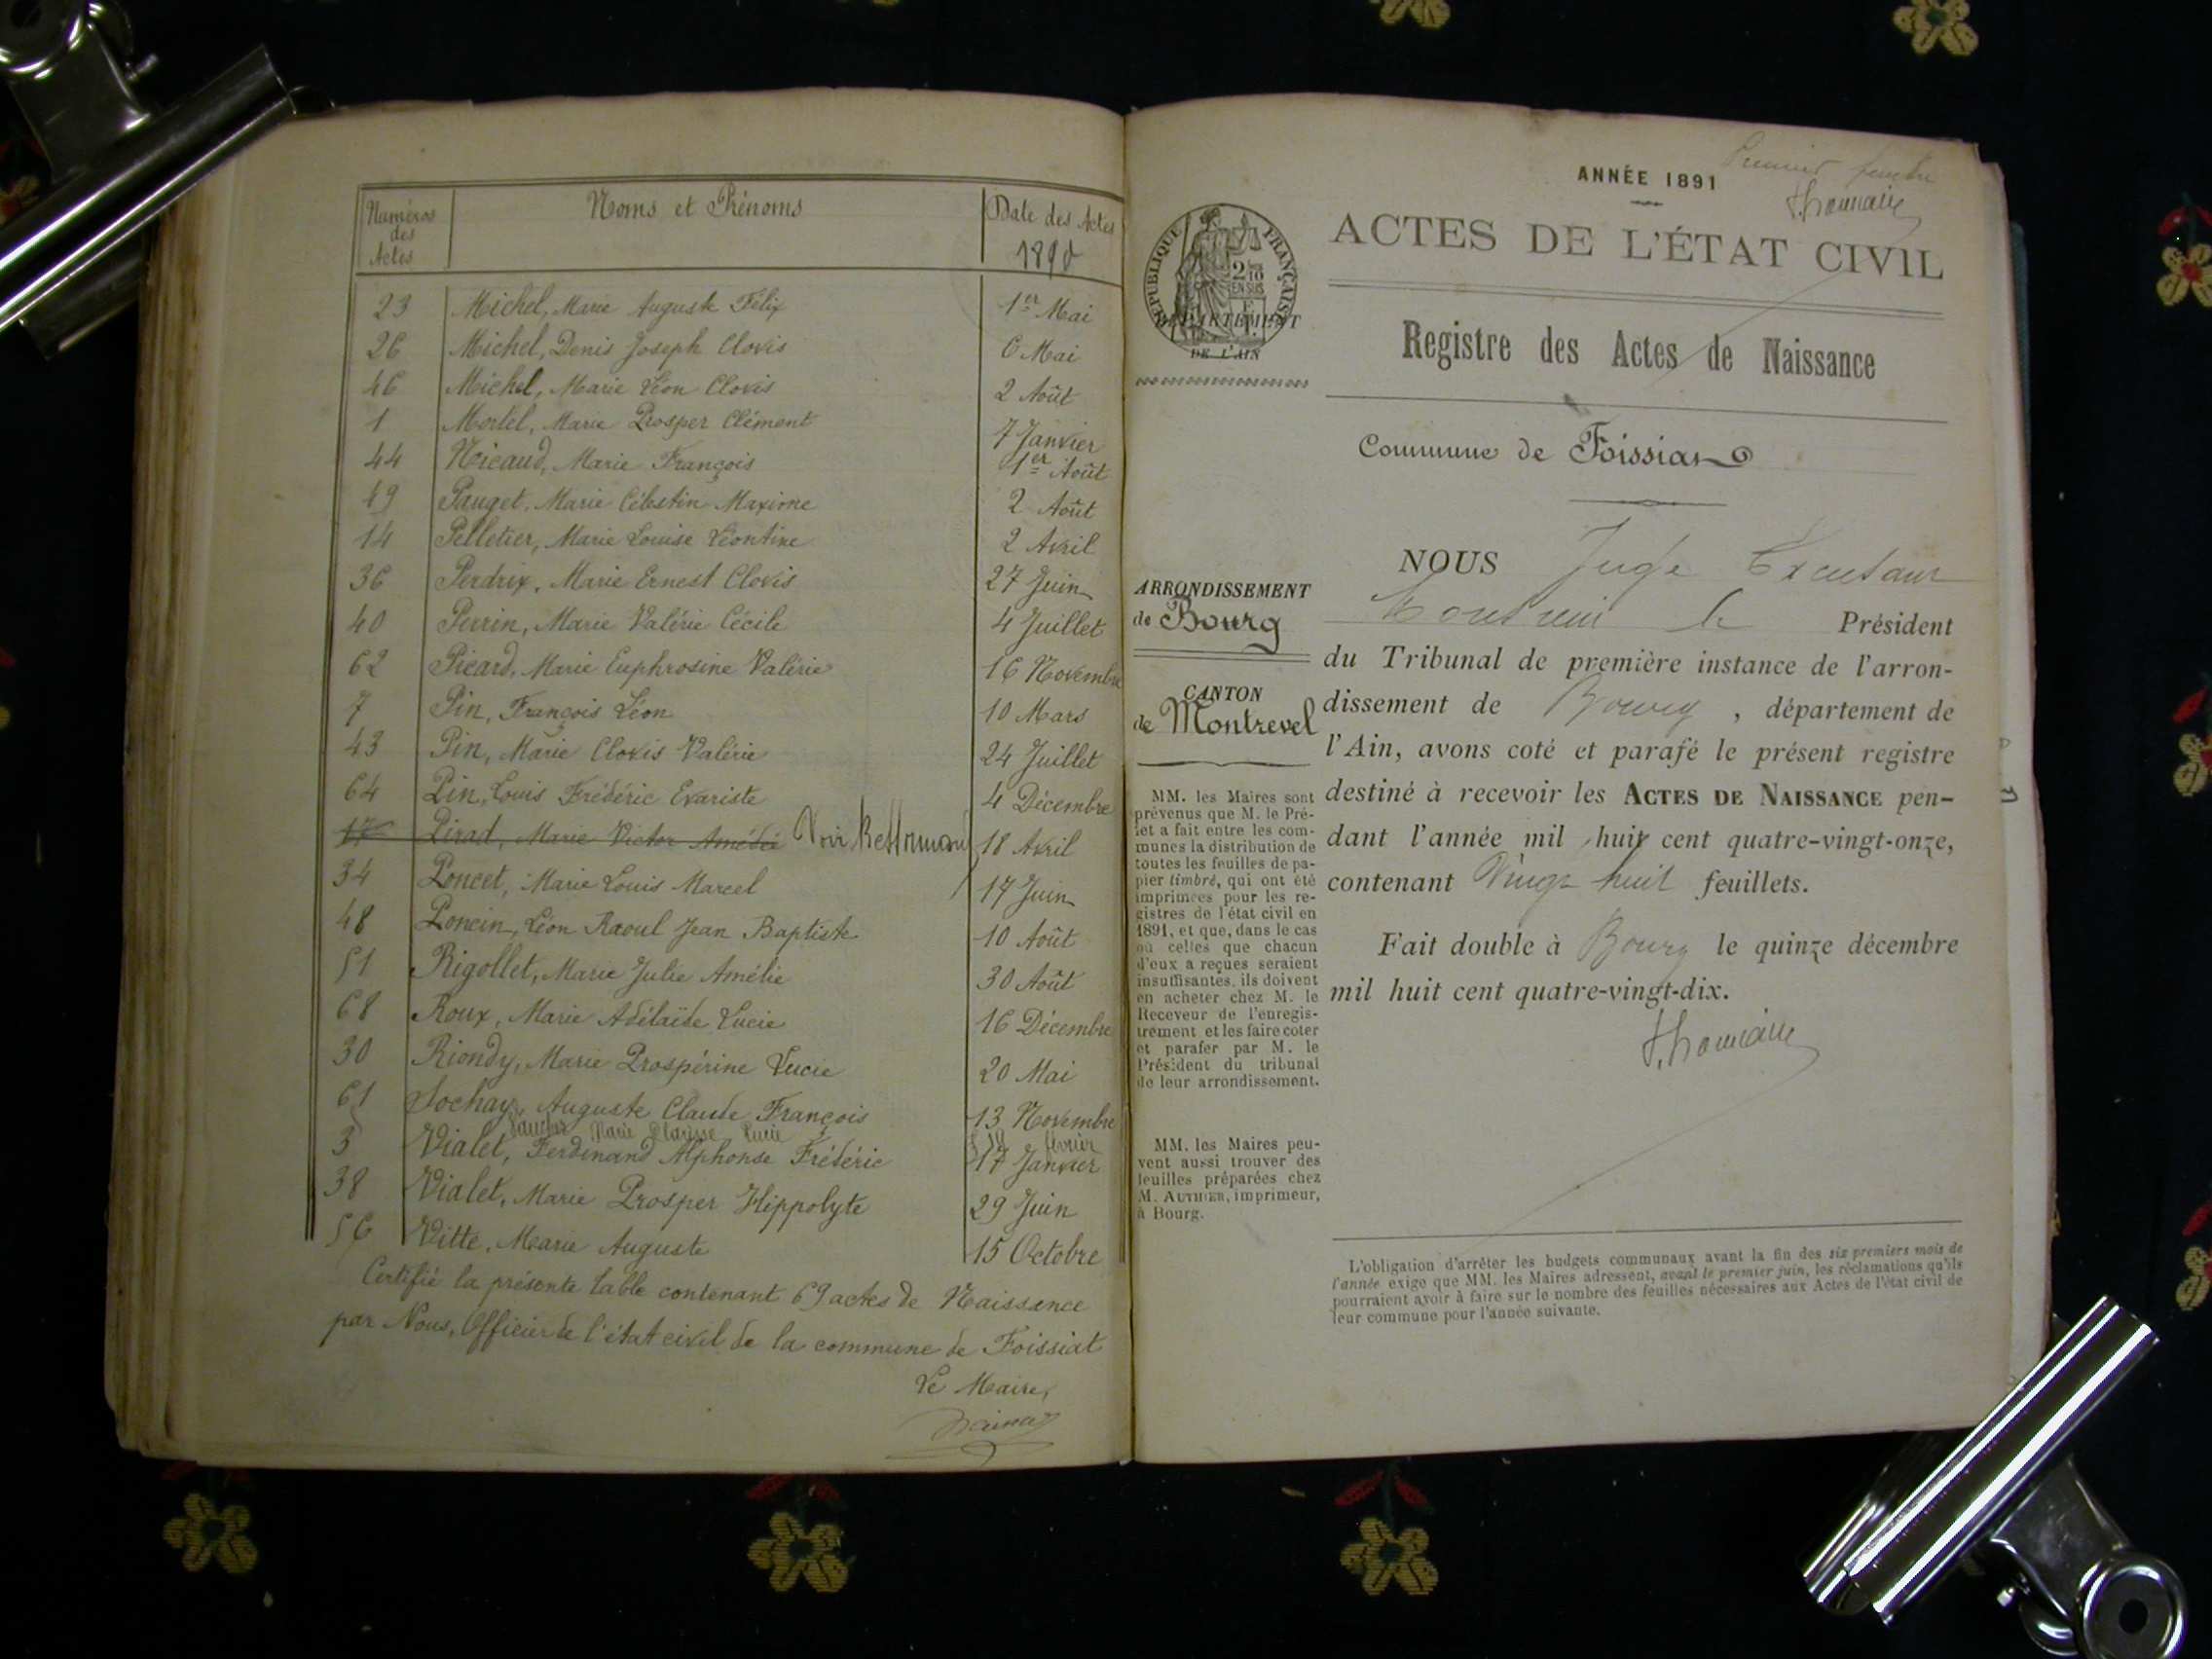 Numéros des Actes
Noms et Prénoms
Date des Actes
1890
23 Michel, Marie Auguste Félix 1er Mai
26 Michel, Denis Joseph Clovis 6 Mai
46 Michel, Marie Léon Clovis 2 Août
1 Mortel, Marie Prosper Clément 7 Janvier
44 Nicaud, Marie François 1er Août
49 Pauget, Marie Célestin Maxime 2 Août
14 Pelletier, Marie Louise Léontine 2 Avril
36 Perdrix, Marie Ernest Clovis 27 Juin
40 Perrin, Marie Valérie Cécile 4 Juillet
62 Picard, Marie Euphrosine Valérie 16 Novembre
7 Pin, François Léon 10 Mars
43 Pin, Marie Clovis Valérie 24 Juillet
64 Pin, Louis Frédéric Evariste 4 Décembre
17 Pirad, Marie Victor Amédée Voir 18 Avril
34 Poncet, Marie Louis Marcel 17 Juin
48 Poncin, Léon Raoul Jean Baptiste 10 Août
51 Rigollet, Marie Julie Amélie 30 Août
68 Roux, Marie Adélaïde Lucie 16 Décembre
30 Riondy, Marie Prospérine Lucie 20 Mai
61 Sochay, Auguste Claude François 13 Novembre
Marie Lucie février
3 Vialet, Ferdinand Alphonse Frédéric 17 Janvier
38 Vialet, Marie Prosper Hippolyte 29 Juin
56 Vitte, Marie Auguste 15 Octobre
Certifié la présente table contenant 69 actes de Naissance
par Nous, Officier de l'état civil de la commune de Foissiat
Le Maire,
ANNÉE 1891
Premier feuillet
ACTES DE L'ÉTAT CIVIL
RÉPUBLIQUE FRANÇAISE
2/10 EN SUS
DÉPARTEMENT
DE L'AIN
Registre des Actes de Naissance
Commune de Foissiat
ARRONDISSEMENT
de Bourg
CANTON
de Montrevel
MM. les Maires sont
prévenus que M. le Pré-
fet a fait entre les com-
munes la distribution de
toutes les feuilles de pa-
pier timbré, qui ont été
imprimées pour les re-
gistres de l'état civil en
1891, et que, dans le cas
où celles que chacun
d'eux a reçues seraient
insuffisantes, ils doivent
en acheter chez M. le
Receveur de l'enregis-
trement et les faire coter
et parafer par M. le
Président du tribunal
de leur arrondissement.
MM. les Maires peu-
vent aussi trouver des
feuilles préparées chez
M. AUTHIER, imprimeur,
à Bourg.
NOUS Juge
Président
du Tribunal de première instance de l'arron-
dissement de Bourg, département de
l'Ain, avons coté et parafé le présent registre
destiné à recevoir les ACTES DE NAISSANCE pen-
dant l'année mil huit cent quatre-vingt-onze,
contenant Vingt huit feuillets.
Fait double à Bourg le quinze décembre
mil huit cent quatre-vingt-dix.
L'obligation d'arrêter les budgets communaux avant la fin des six premiers mois de
l'année exige que MM. les Maires adressent, avant le premier juin, les réclamations qu'ils
pourraient avoir à faire sur le nombre des feuilles nécessaires aux Actes de l'état civil de
leur commune pour l'année suivante.